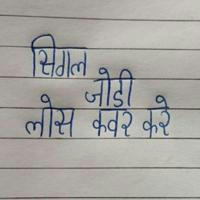 सिगल
जोडी
लोस कवर करे